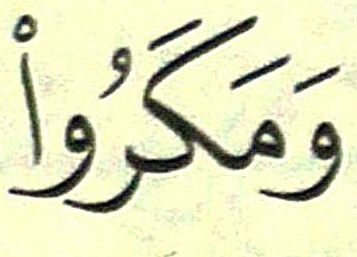 وَمَكَرُواْ